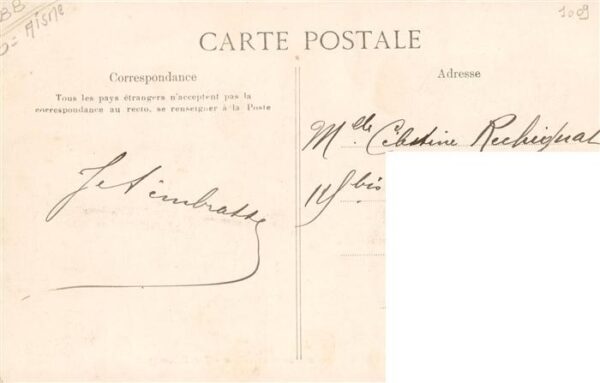 BB
= Aisne
1009
CARTE POSTALE
Correspondance
Tous les pays étrangers n'acceptent pas la
correspondance au recto, se renseigner à la Poste
Je t'embrasse
Adresse
Mlle Célestine Rechignat
115 bis